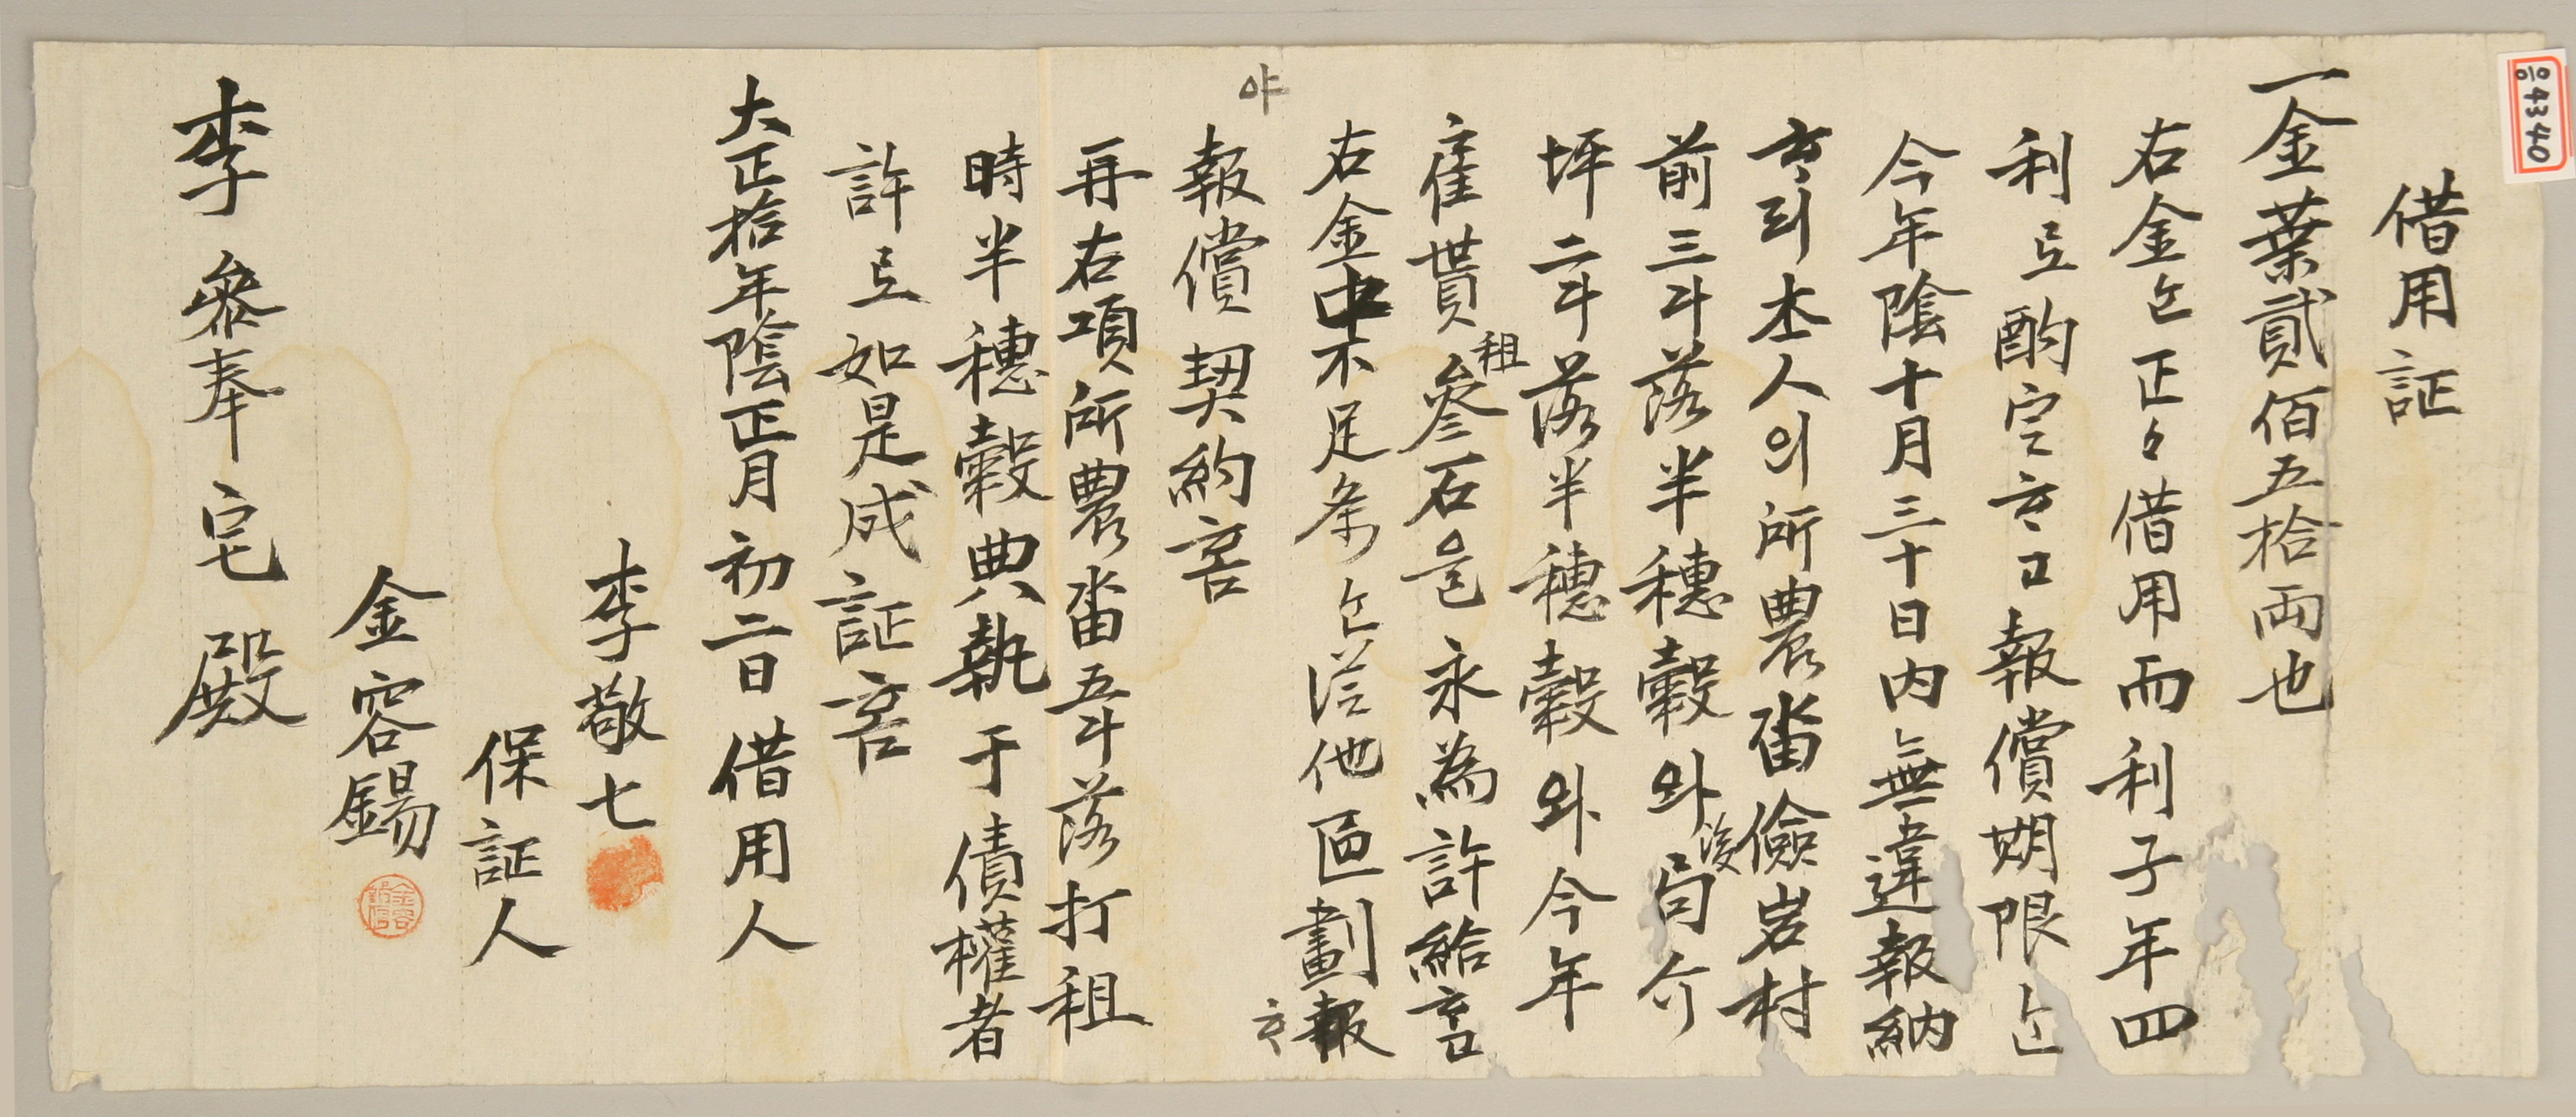 借用証
一金葉貳佰五拾両也
右金은正々借用而利子年四
利로酌定하고報償期限은
今年陰十月三十日内無違報納
하되本人의所農畓儉岩村
前三斗落半穗穀와後씀介
坪二斗落半穗穀와今年
雇貰租參石을永為許給홈
右金中不足条은從他區劃報하
야
報償契約홈
再右項所農畓五斗落打租
時半穗穀典執于債權者
許로如是成証홈
大正拾年陰正月初二日借用人
李敬七
保証人
金容錫
李參奉宅殿
음4340